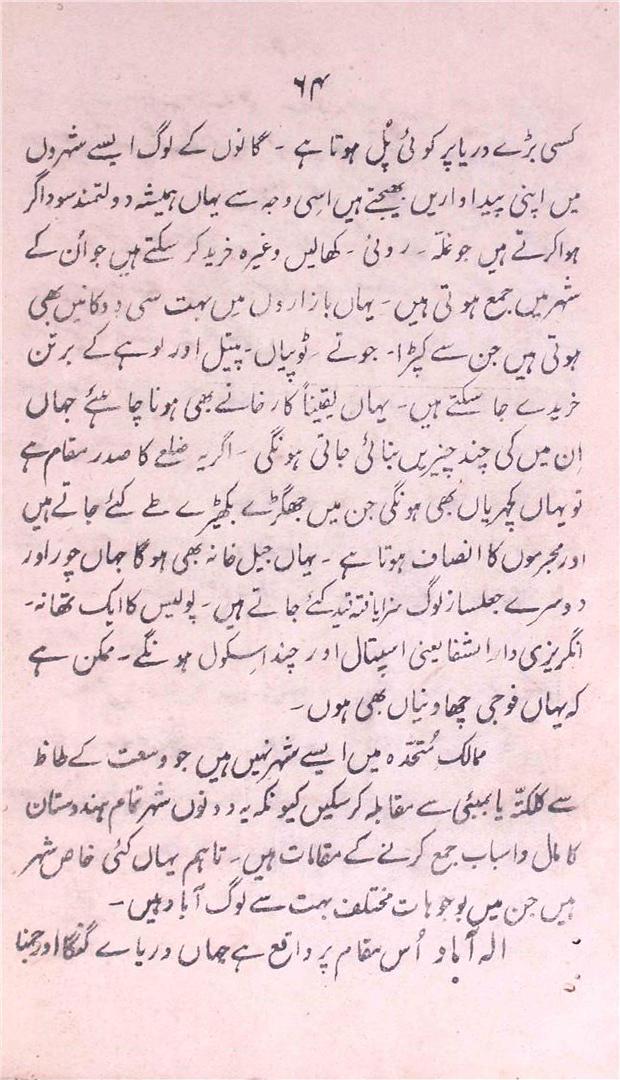 ۶۴
کسی بڑے دریا پر کوئی پُل ہوتا ہے - گانوں کے لوگ ایسے شہروں
میں اپنی پیداواریں بھیجتے ہیں اسی وجہ سے یہاں ہمیشہ دولتمند سوداگر
ہوا کرتے ہیں جو غلّہ - روئی - کھالیں وغیرہ خرید کر سکتے ہیں جو اُن کے
شہر میں جمع ہوتی ہیں - یہاں بازاروں میں بہت سی دوکانیں بھی
ہوتی ہیں جن سے کپڑا - جوتے - ٹوپیاں - پیتل اور لوہے کے برتن
خریدے جا سکتے ہیں - یہاں یقیناً کارخانے بھی ہونا چاہئے جہاں
اِن میں کی چند چیزیں بنائی جاتی ہونگی - اگر یہ ضلعے کا صدر مقام ہے
تو یہاں کچہریاں بھی ہونگی جن میں جھگڑے بکھیڑے طے کئے جاتے ہیں
اور مجرموں کا انصاف ہوتا ہے - یہاں جیل خانہ بھی ہوگا جہاں چور اور
دوسرے جعلساز لوگ سزا یافتہ قید کئے جاتے ہیں - پولیس کا ایک تھانہ -
انگریزی دارالشفا یعنی اسپتال اور چند اسکول ہونگے - ممکن ہے
کہ یہاں فوجی چھاونیاں بھی ہوں -
ممالک مُتحدّہ میں ایسے شہر نہیں ہیں جو وسعت کے لحاظ
سے کلکتّہ یا بمبئی سے مقابلہ کر سکیں کیونکہ یہ دونوں شہر تمام ہندوستان
کا مال و اسباب جمع کرنے کے مقامات ہیں - تاہم یہاں کئی خاص شہر
ہیں جن میں بوجوہات مختلف بہت سے لوگ آباد ہیں -
الہ آباد اُس مقام پر واقع ہے جہاں دریاے گنگا اور جمنا